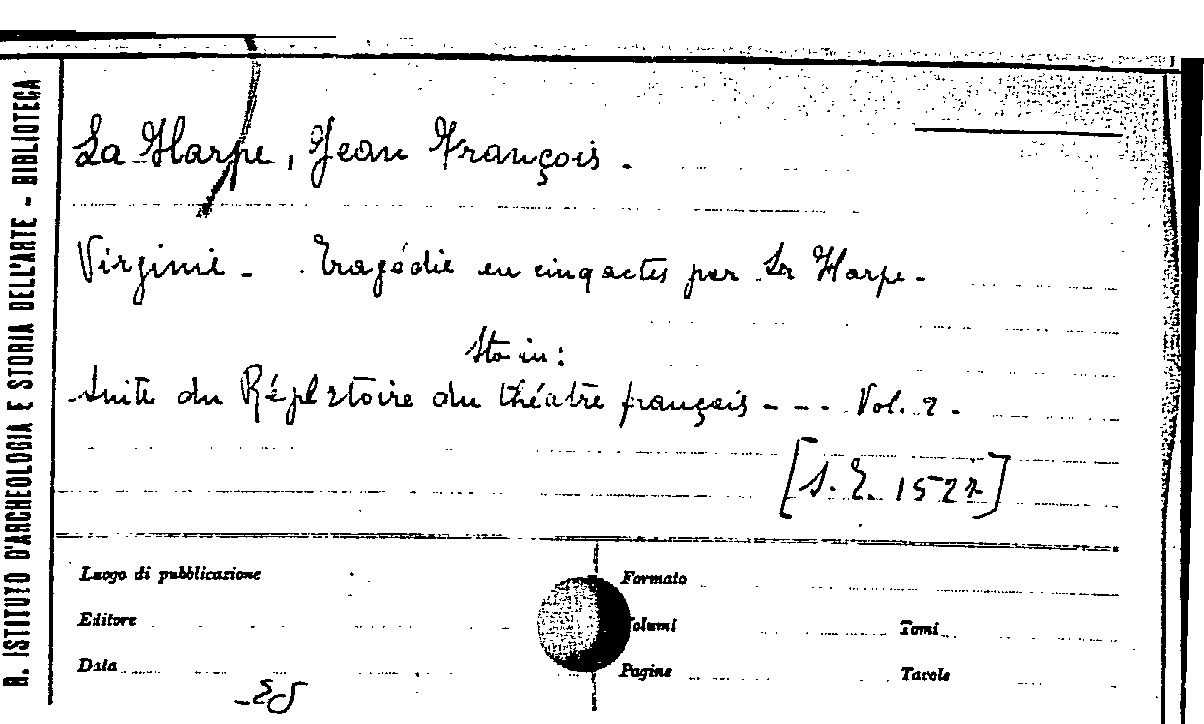 R. ISTITUTO D'ARCHEOLOGIA E STORIA DELL'ARTE - BIBLIOTECA
La Harpe, Jean François.
Virginie - Tragédie en cinq actes par La Harpe -
Sta in:
Suite du Répertoire du théatre français - - - Vol. 2 -
[S. E. 1522]
Luogo di pubblicazione
Formato
Editore
Volumi
Tomi
Data
Pagine
Tavole